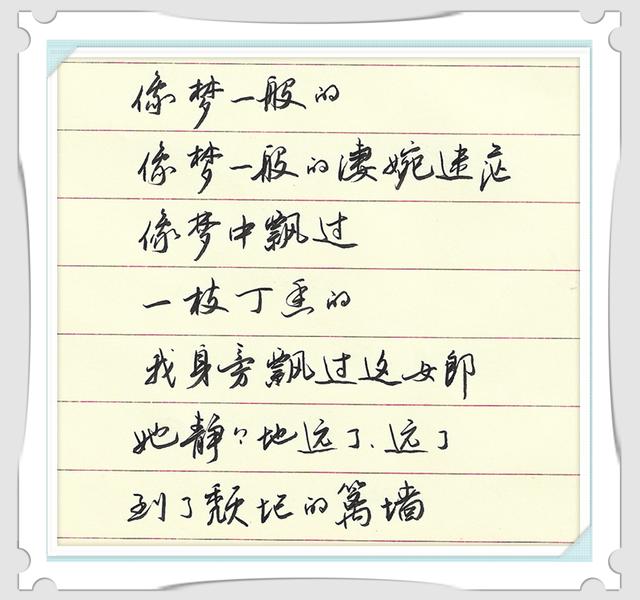 像梦一般的
像梦一般的凄婉迷茫
像梦中飘过
一枝丁香的
我身旁飘过这女郎
她静々地远了、远了
到了颓圮的篱墙